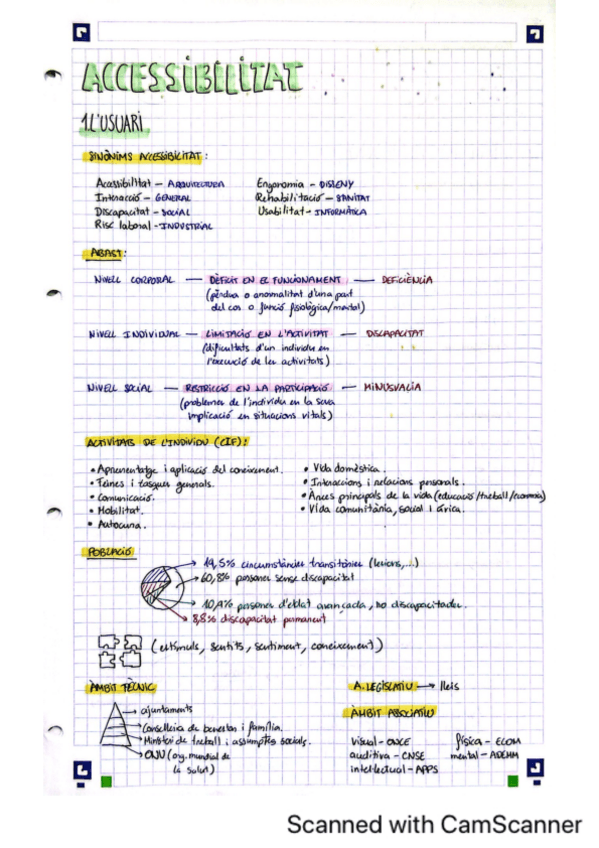 ACCESSIBILITAT
1. L'USUARI
SINÒNIMS ACCESSIBILITAT:
Accessibilitat — ARQUITECTURA
Interacció — GENERAL
Discapacitat — SOCIAL
Risc laboral - INDUSTRIAL
Ergonomia — DISSENY
Rehabilitació — SANITAT
Usabilitat - INFORMÀTICA
ABAST:
NIVELL CORPORAL — DÈFICIT EN EL FUNCIONAMENT — DEFICIÈNCIA
(pèrdua o anormalitat d'una part
del cos o funció fisiològica/mental)
NIVELL INDIVIDUAL — LIMITACIÓ EN L'ACTIVITAT — DISCAPACITAT
(dificultats d'un individu en
l'execució de les activitats)
NIVELL SOCIAL — RESTRICCIÓ EN LA PARTICIPACIÓ — MINUSVALIA
(problemes de l'individu en la seva
implicació en situacions vitals)
ACTIVITATS DE L'INDIVIDU (CIF):
• Aprenentatge i aplicació del coneixement.
• Feines i tasques generals.
• Comunicació.
• Mobilitat.
• Autocura.
• Vida domèstica.
• Interaccions i relacions personals.
• Àrees principals de la vida (educació/treball/economia)
• Vida comunitària, social i cívica.
POBLACIÓ
19,5% circumstàncies transitòries (lesions,...)
60,8% persones sense discapacitat
10,9% persones d'edat avançada, no discapacitades.
8,8% discapacitat permanent
(estímuls, sentits, sentiment, coneixement)
ÀMBIT TÈCNIC
ajuntaments
Conselleia de benestar i família.
Ministeri de treball i assumptes socials.
ONU (org. mundial de
la salut)
A. LEGISLATIU → lleis
ÀMBIT ASSOCIATIU
visual - ONCE
auditiva - CNSE
intel·lectual - APPS
física - ECOM
mental - ADEMM
Scanned with CamScanner